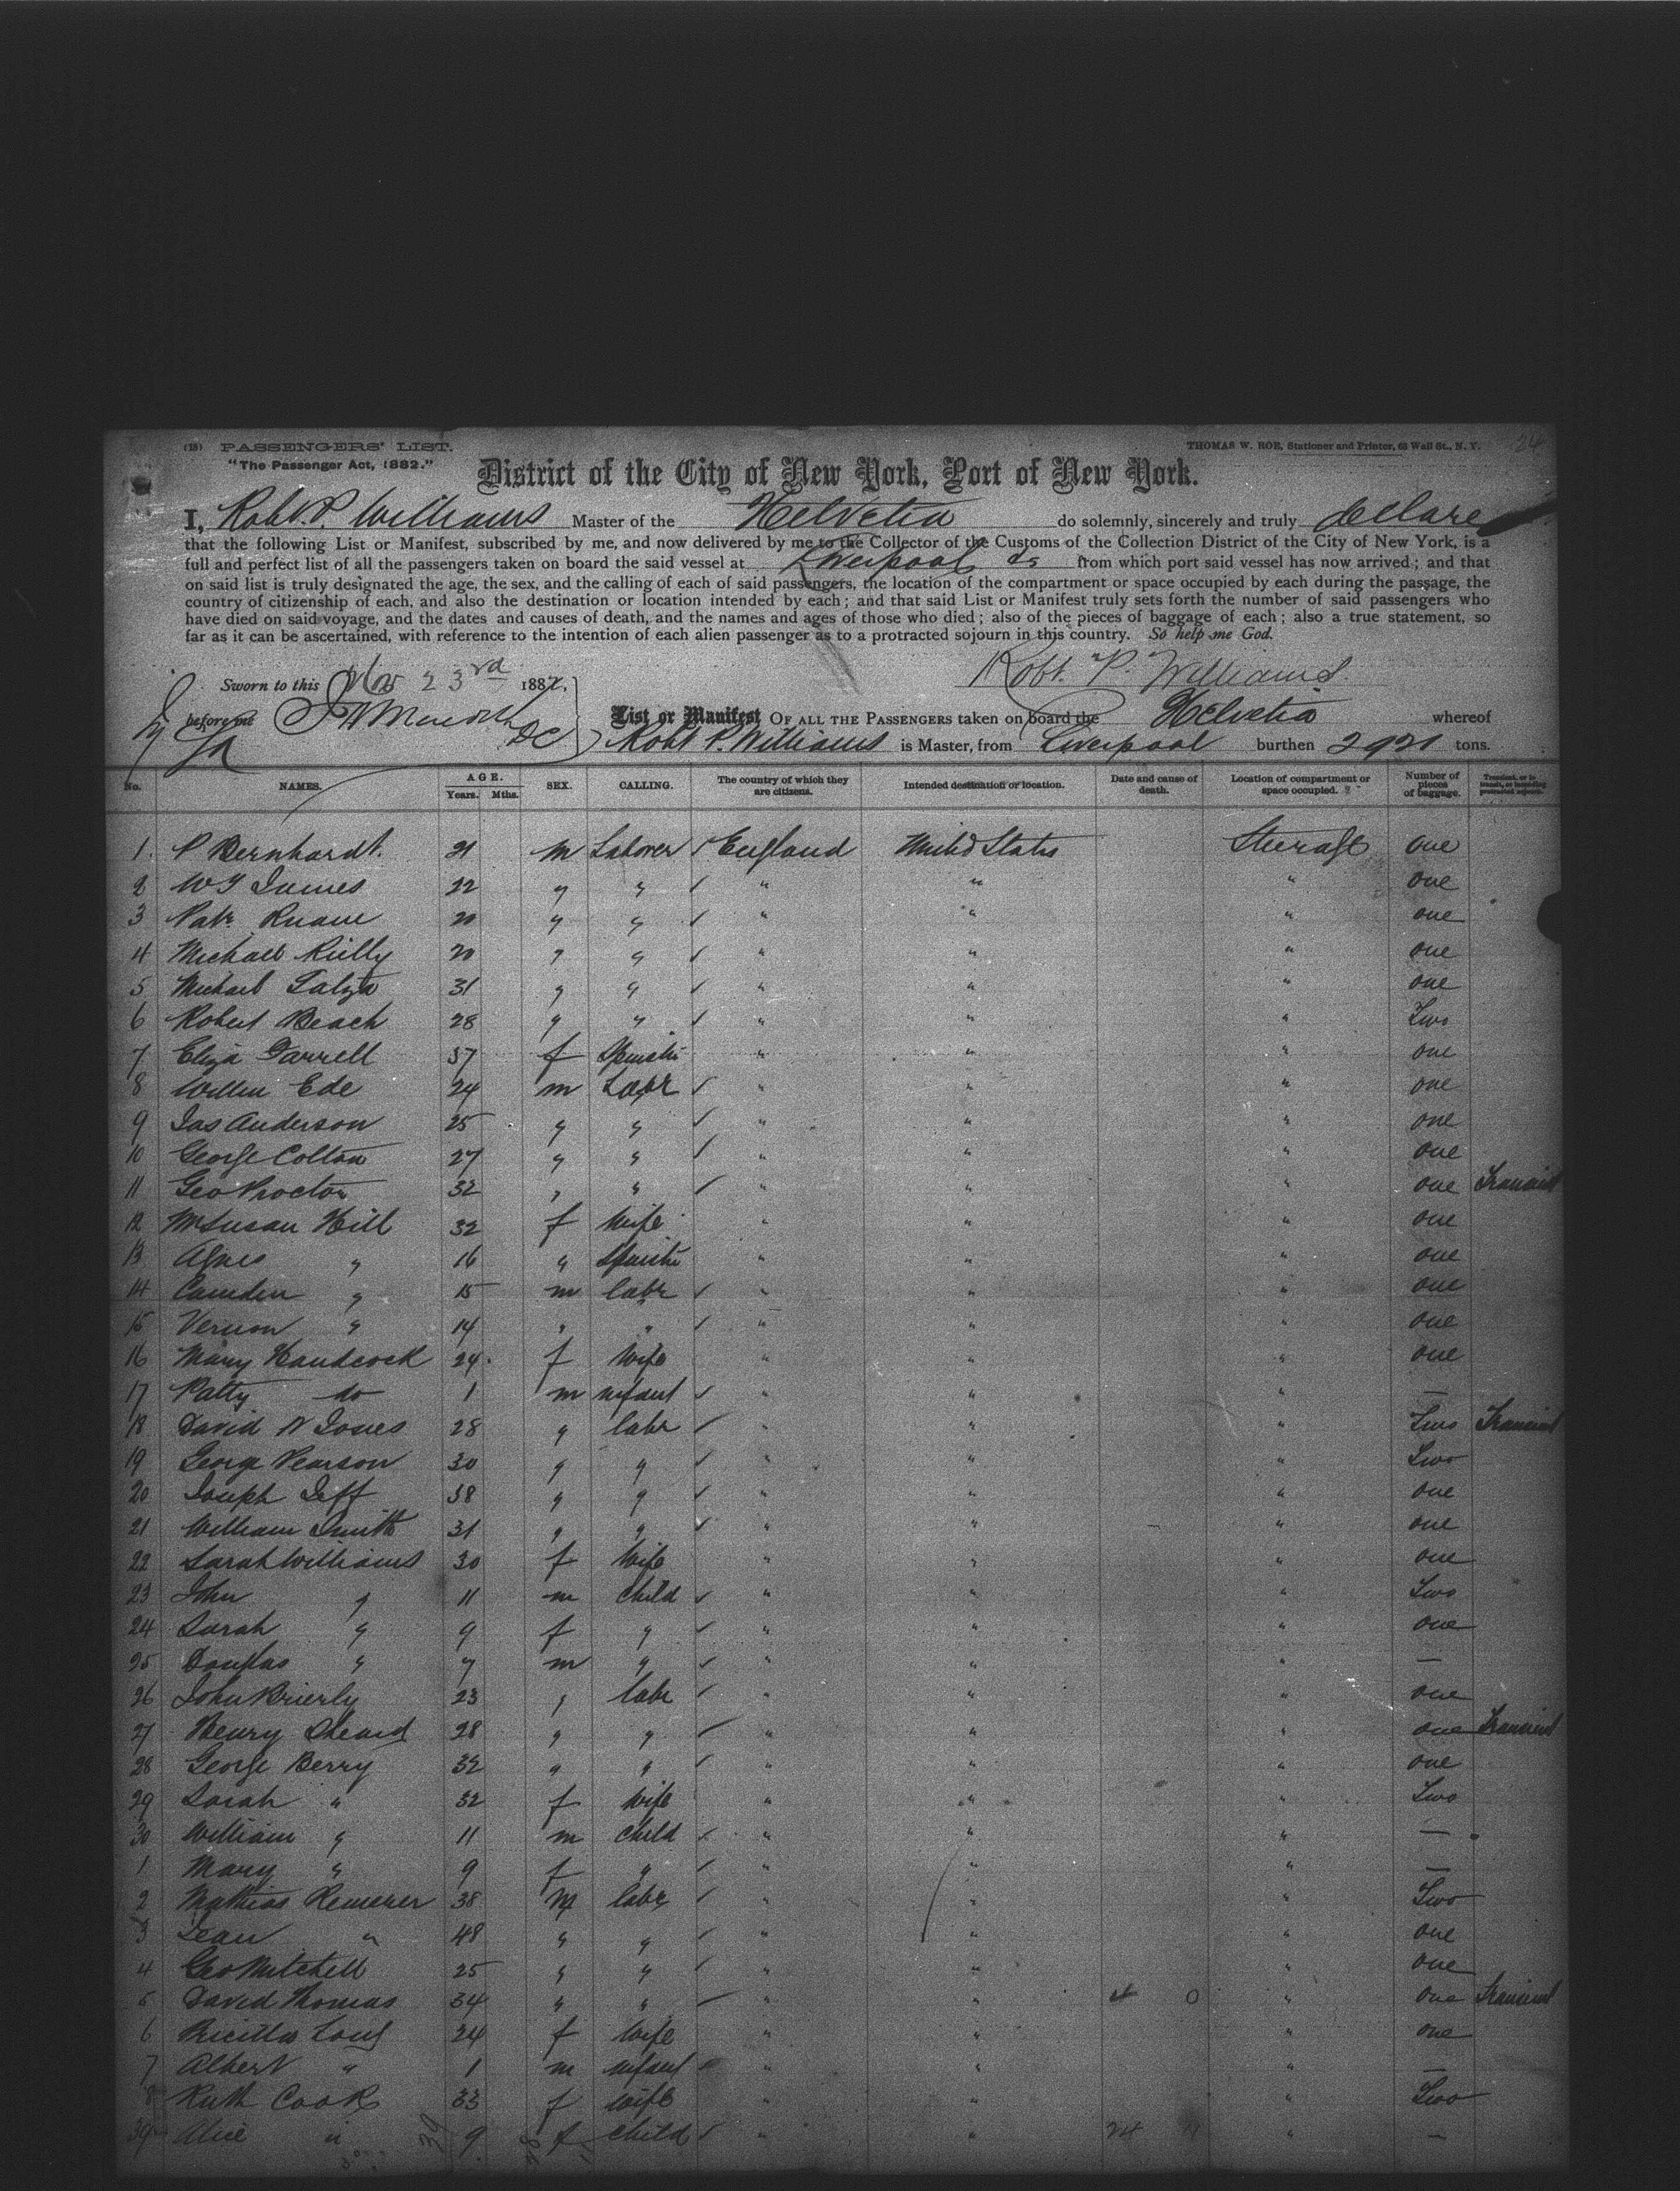 (18) PASSENGERS' LIST.
THOMAS W. ROE, Stationer and Printer, 63 Wall St., N. Y. 24
"The Passenger Act, 1882."
District of the City of New York, Port of New York.
I, Robt. P. Williams Master of the Helvetia do solemnly, sincerely and truly declare
that the following List or Manifest, subscribed by me, and now delivered by me to the Collector of the Customs of the Collection District of the City of New York, is a
full and perfect list of all the passengers taken on board the said vessel at Liverpool from which port said vessel has now arrived; and that
on said list is truly designated the age, the sex, and the calling of each of said passengers, the location of the compartment or space occupied by each during the passage, the
country of citizenship of each, and also the destination or location intended by each; and that said List or Manifest truly sets forth the number of said passengers who
have died on said voyage, and the dates and causes of death, and the names and ages of those who died; also of the pieces of baggage of each; also a true statement, so
far as it can be ascertained, with reference to the intention of each alien passenger as to a protracted sojourn in this country. So help me God.
Robt. P. Williams.
Sworn to this Nov 23rd 1887,
before me
List or Manifest OF ALL THE PASSENGERS taken on board the Helvetia whereof
Robt P. Williams is Master, from Liverpool burthen 2921 tons.
No. NAMES. AGE. Years. Mths. SEX. CALLING. The country of which they are citizens. Intended destination or location. Date and cause of death. Location of compartment or space occupied. Number of pieces of baggage. Transient, or in transit, or intending protracted sojourn.
1. P Bernhardt. 21 m Laborer ✓ England United States Steerage one
2 W J James 22 " " ✓ " " " one
3 Patk Ruane 20 " " ✓ " " " one
4 Michael Reilly 20 " " ✓ " " " one
5 Michael 31 " " ✓ " " " one
6 Robert Beach 28 " " ✓ " " " Two
7 Eliza Farrell 37 f Spinstr " " " one
8 Ede 24 m Labr ✓ " " " one
9 Jas Anderson 25 " " ✓ " " " one
10 George Colton 27 " " ✓ " " " one
11 Geo Proctor 32 " " ✓ " " " one Transient
12 Mrs Susan Hill 32 f wife " " " one
13 Agnes " 16 " Spinstr " " " one
14 Camden " 15 m labr ✓ " " " one
15 Vernon " 14 " " ✓ " " " one
16 Mary Handcock 24 f wife " " " one
17 Patty do 1 m infant ✓ " " " —
18 David W Jones 28 " labr ✓ " " " Two Transient
19 George Pearson 30 " " ✓ " " " Two
20 Joseph Jeff 38 " " ✓ " " " one
21 William Smith 31 " " ✓ " " " one
22 Sarah Williams 30 f wife " " " one
23 John " 11 m child ✓ " " " Two
24 Sarah " 9 f " ✓ " " " one
25 Douglas " 7 m " ✓ " " " —
26 John Brierly 23 " labr ✓ " " " one
27 Henry Sheard 28 " " ✓ " " " one Transient
28 George Berry 32 " " ✓ " " " one
29 Sarah " 32 f wife " " " Two
30 William " 11 m child ✓ " " " —
1 Mary " 9 f " ✓ " " " —
2 Mathias Remener 38 m labr ✓ " " " Two
3 Jean " 48 " " ✓ " " " one
4 Geo Mitchell 25 " " ✓ " " " one
5 David Thomas 34 " " ✓ " " " one Transient
6 Pricilla Long 24 f wife " " " one
7 Albert " 1 m infant " " " —
8 Ruth Cook 33 f wife " " " Two
39 Alice " 9 f child ✓ " " 24 " —